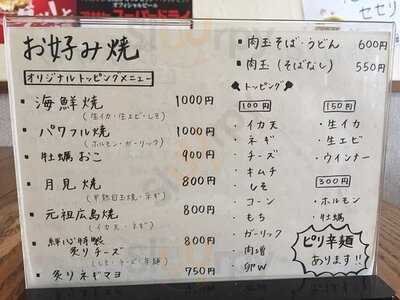 オフィシャルビール
スーパードライ
セセリ
お好み焼
オリジナルトッピングメニュー
▪ 海鮮焼 1000円
(生イカ・生エビ・しそ)
▪ パワフル焼 1000円
(ホルモン・ガーリック)
▪ 牡蠣おこ 900円
▪ 月見焼 800円
(半熟目玉焼・ネギ)
▪ 元祖広島焼 800円
(イカ天・ネギ)
▪ 絆心特製
炙りチーズ 800円
▪ 炙りネギマヨ 750円
▪ 肉玉そば・うどん 600円
▪ 肉玉(そばなし) 550円
トッピング
100円
・イカ天
・ネギ
・チーズ
・キムチ
・しそ
・コーン
・もち
・ガーリック
・肉増
・卵W
150円
・生イカ
・生エビ
・ウインナー
300円
・ホルモン
・牡蠣
ピリ辛麺
あります!!